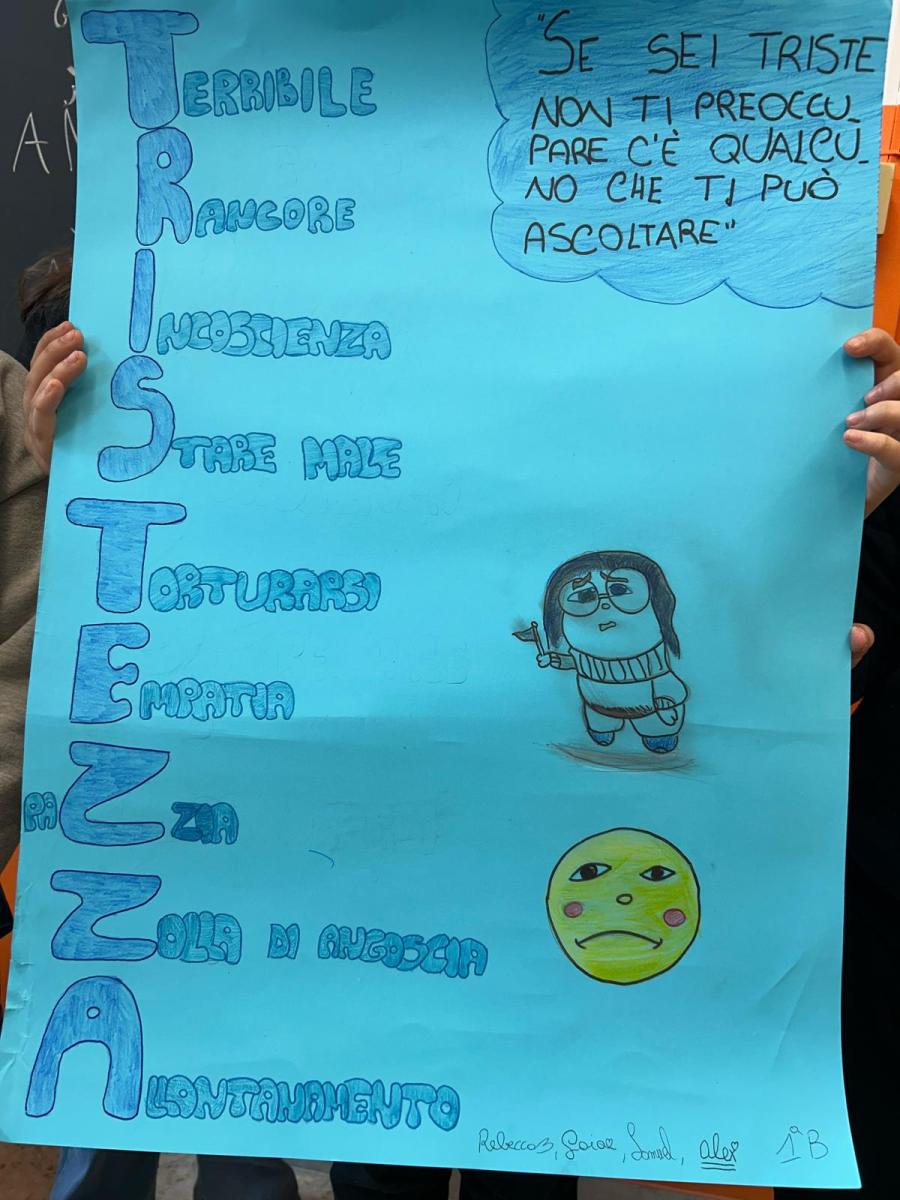 TERRIBILE
RANCORE
INCOSCIENZA
STARE MALE
TORTURARSI
EMPATIA
PAZZIA
ZOLLA DI ANGOSCIA
ALLONTANAMENTO
"SE SEI TRISTE
NON TI PREOCCU_
PARE C'È QUALCU_
NO CHE TI PUÒ
ASCOLTARE"
Rebecca B, Gaiae, Samuel, Alex 1ªB